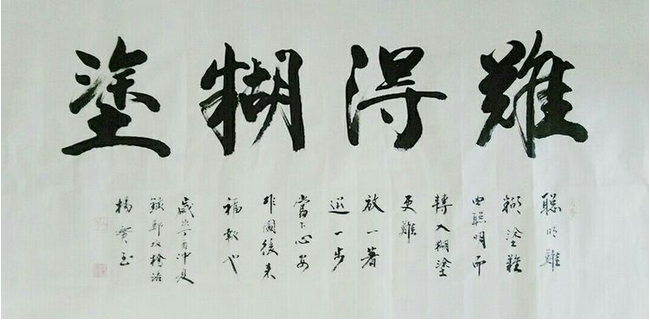 難得糊塗
聰明難
糊塗難
由聰明而
轉入糊塗
更難
放一著
退一步
當下心安
非圖後來
福報也
歲仲夏
錄鄭板橋語
楊